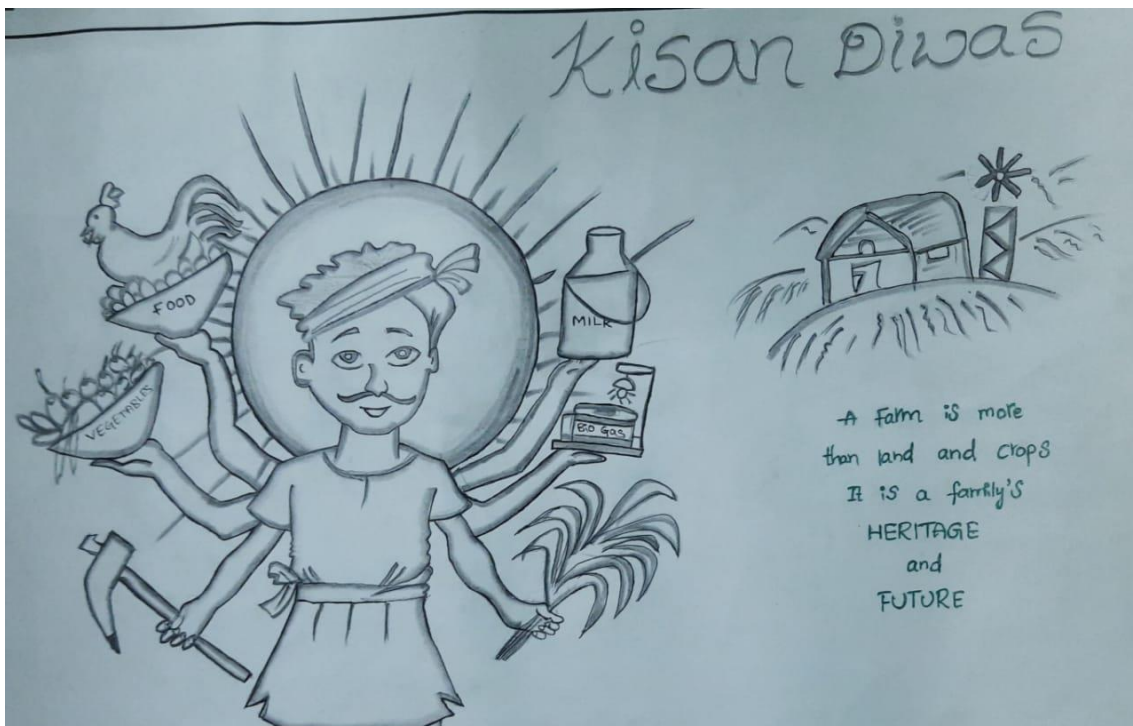 Kisan Diwas
FOOD
MILK
VEGETABLES
BIO Gas
A farm is more
than land and crops
It is a family's
HERITAGE
and
FUTURE